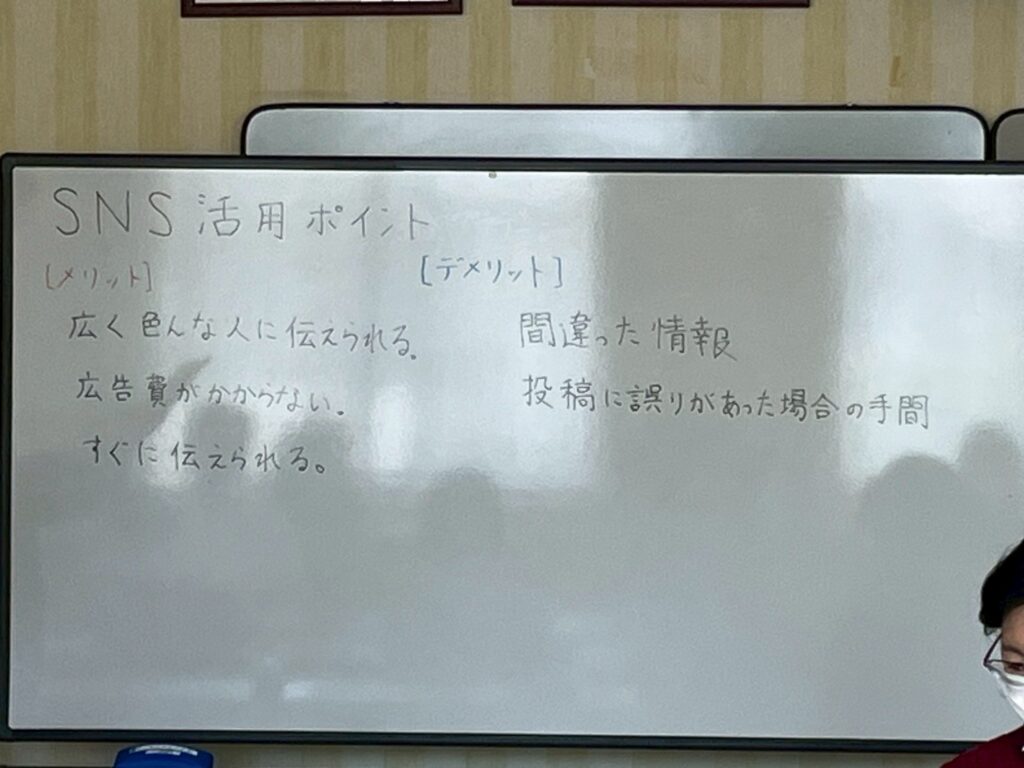 SNS活用ポイント
[メリット]
広く色んな人に伝えられる。
広告費がかからない。
すぐに伝えられる。
[デメリット]
間違った情報
投稿に誤りがあった場合の手間